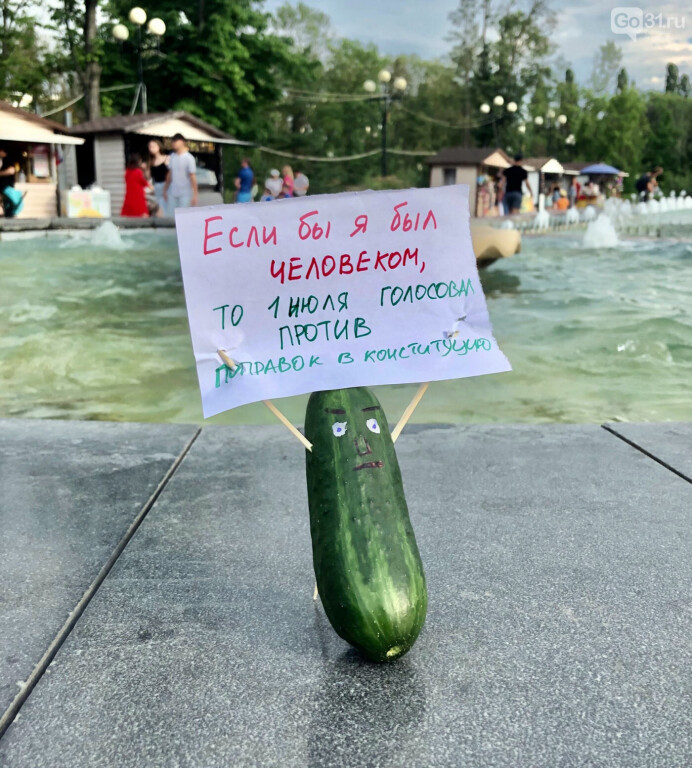 Go31.ru
Если бы я был
ЧЕЛОВЕКОМ,
ТО 1 ИЮЛЯ ГОЛОСОВАЛ
ПРОТИВ
ПОПРАВОК В КОНСТИТУЦИЮ